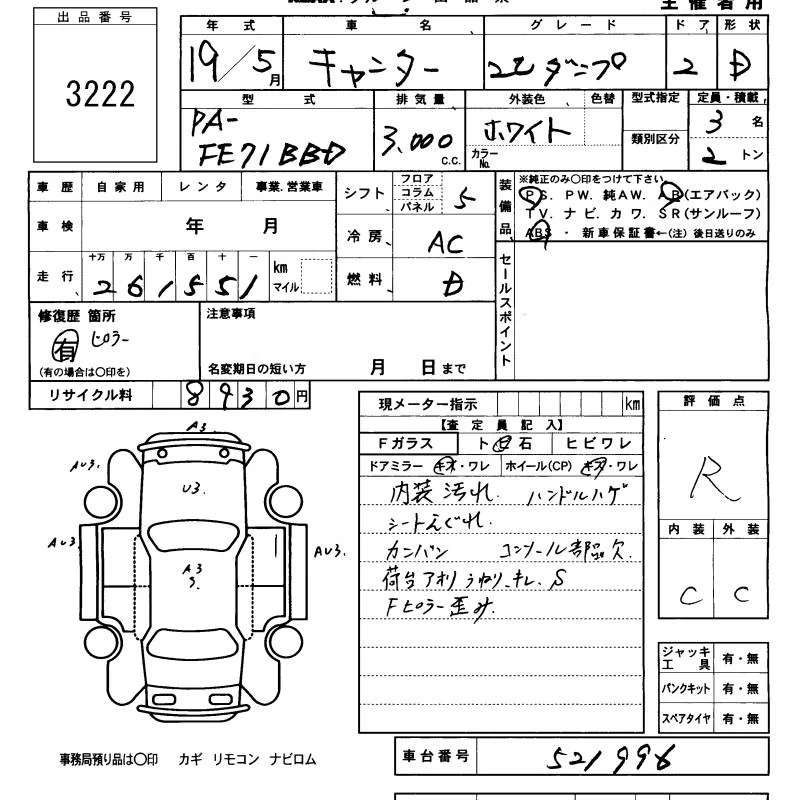 主催者用
出品番号
3222
年式 車名 グレード ドア 形状
19/5月 キャンター 2t ダンプ 2 D
型式 排気量 外装色 色替 型式指定 定員・積載
PA-FE71BBD 3,000 c.c. ホワイト カラーNo. 類別区分 3名 2トン
車歴 自家用 レンタ 事業.営業車
車検 年 月
走行 十万 万 千 百 十 一
261551 km マイル
シフト フロア コラム パネル 5
冷房 AC
燃料 D
装備品 ※純正のみ〇印をつけて下さい
PS. PW. 純AW. AB(エアバック)
TV. ナビ. カワ. SR(サンルーフ)
ABS ・ 新車保証書←(注) 後日送りのみ
セールスポイント
修復歴 箇所
有 ピラー
(有の場合は〇印を)
注意事項
名変期日の短い方 月 日まで
リサイクル料 8930円
現メーター指示 km
【査定員記入】
Fガラス ト ビ 石 ヒビワレ
ドアミラー キズ・ワレ ホイール(CP) キズ・ワレ
内装汚れ. ハンドルハゲ
シートえぐれ.
カンバン コンソール部品欠.
荷台アオリ うねり.キレ. S
Fピラー歪み.
評価点
R
内装 外装
C C
ジャッキ工具 有・無
パンクキット 有・無
スペアタイヤ 有・無
A3
AU3. U3.
AU3 A3 S. AU3.
事務局預り品は〇印 カギ リモコン ナビロム
車台番号 521996